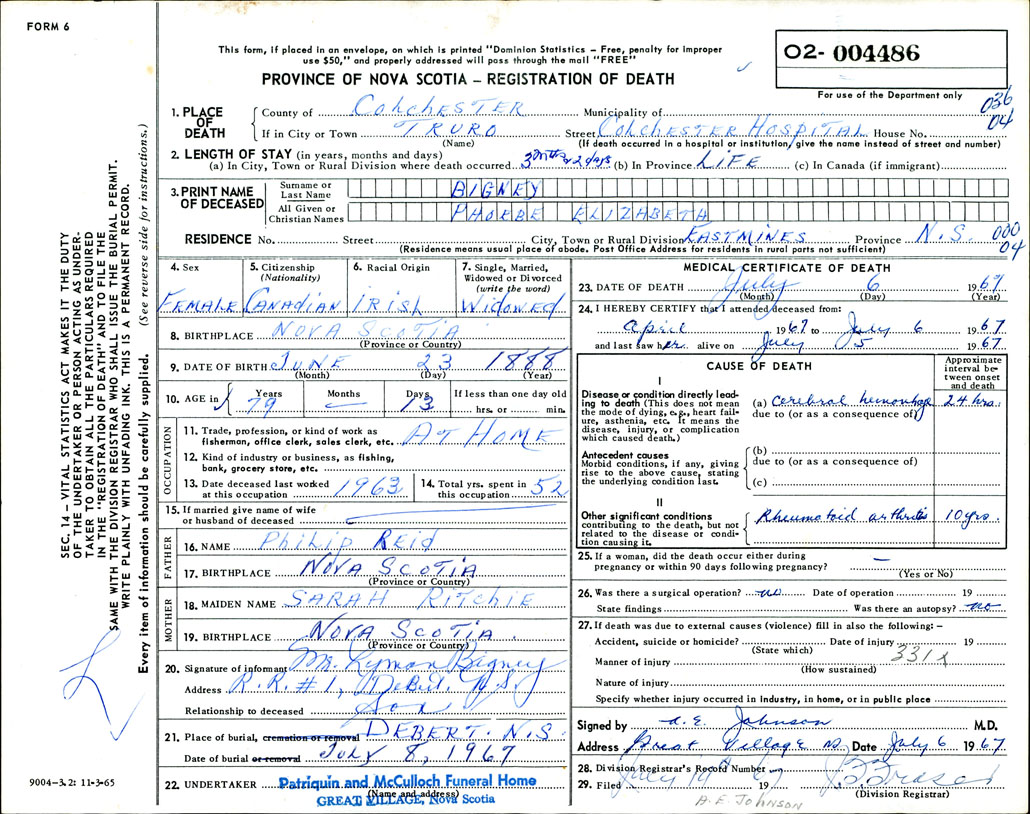 FORM 6
This form, if placed in an envelope, on which is printed "Dominion Statistics – Free, penalty for improper
use $50," and properly addressed will pass through the mail "FREE"
PROVINCE OF NOVA SCOTIA – REGISTRATION OF DEATH
02- 004486
For use of the Department only
036
04
1. PLACE OF DEATH
County of Colchester Municipality of
If in City or Town TRURO Street Colchester Hospital House No.
(Name) (If death occurred in a hospital or institution, give the name instead of street and number)
2. LENGTH OF STAY (in years, months and days)
(a) In City, Town or Rural Division where death occurred 3 mths 2 days (b) In Province LIFE (c) In Canada (if immigrant)
3. PRINT NAME OF DECEASED
Surname or Last Name BIGNEY
All Given or Christian Names PHOEBE ELIZABETH
RESIDENCE No. Street City, Town or Rural Division EASTMINES Province N.S.
000
04
(Residence means usual place of abode. Post Office Address for residents in rural parts not sufficient)
4. Sex
FEMALE
5. Citizenship (Nationality)
Canadian
6. Racial Origin
IRISH
7. Single, Married, Widowed or Divorced (write the word)
Widowed
8. BIRTHPLACE NOVA SCOTIA
(Province or Country)
9. DATE OF BIRTH JUNE 23 1888
(Month) (Day) (Year)
10. AGE in Years Months Days If less than one day old
79 – 13 hrs. or min.
OCCUPATION
11. Trade, profession, or kind of work as
fisherman, office clerk, sales clerk, etc. AT HOME
12. Kind of industry or business, as fishing,
bank, grocery store, etc.
13. Date deceased last worked at this occupation 1963
14. Total yrs. spent in this occupation 52
15. If married give name of wife
or husband of deceased
FATHER
16. NAME Philip Reid
17. BIRTHPLACE NOVA SCOTIA
(Province or Country)
MOTHER
18. MAIDEN NAME SARAH Ritchie
19. BIRTHPLACE NOVA SCOTIA.
(Province or Country)
20. Signature of informant Mr. Lyman Bigney
Address R.R.#1, Debert. N.S.
Relationship to deceased Son
21. Place of burial, cremation or removal DEBERT. N.S.
Date of burial or removal July 8, 1967
22. UNDERTAKER Patriquin and McCulloch Funeral Home
(Name and address)
GREAT VILLAGE, Nova Scotia
MEDICAL CERTIFICATE OF DEATH
23. DATE OF DEATH July 6 1967
(Month) (Day) (Year)
24. I HEREBY CERTIFY that I attended deceased from:
April 1967 to July 6 1967
and last saw her alive on July 5 1967
CAUSE OF DEATH
Approximate interval between onset and death
I
Disease or condition directly leading to death (This does not mean the mode of dying, e.g., heart failure, asthenia, etc. It means the disease, injury, or complication which caused death.)
(a) Cerebral hemorrhage 24 hrs.
due to (or as a consequence of)
Antecedent causes
Morbid conditions, if any, giving rise to the above cause, stating the underlying condition last.
(b)
due to (or as a consequence of)
(c)
II
Other significant conditions
contributing to the death, but not related to the disease or condition causing it.
Rheumatoid arthritis 10 yrs.
25. If a woman, did the death occur either during
pregnancy or within 90 days following pregnancy? –
(Yes or No)
26. Was there a surgical operation? no Date of operation 19
State findings Was there an autopsy? no
27. If death was due to external causes (violence) fill in also the following: –
Accident, suicide or homicide? Date of injury 19
(State which)
Manner of injury 331X
(How sustained)
Nature of injury
Specify whether injury occurred in industry, in home, or in public place
Signed by A. E. Johnson M.D.
Address Great Village NS Date July 6 1967
28. Division Registrar's Record Number
29. Filed July 19 67
(Division Registrar)
A. E. JOHNSON
SEC. 14 – VITAL STATISTICS ACT MAKES IT THE DUTY
OF THE UNDERTAKER OR PERSON ACTING AS UNDER-
TAKER TO OBTAIN ALL THE PARTICULARS REQUIRED
IN THE "REGISTRATION OF DEATH" AND TO FILE THE
SAME WITH THE DIVISION REGISTRAR WHO SHALL ISSUE THE BURIAL PERMIT.
WRITE PLAINLY WITH UNFADING INK. THIS IS A PERMANENT RECORD.
Every item of information should be carefully supplied. (See reverse side for instructions.)
9004–3.2: 11-3-65